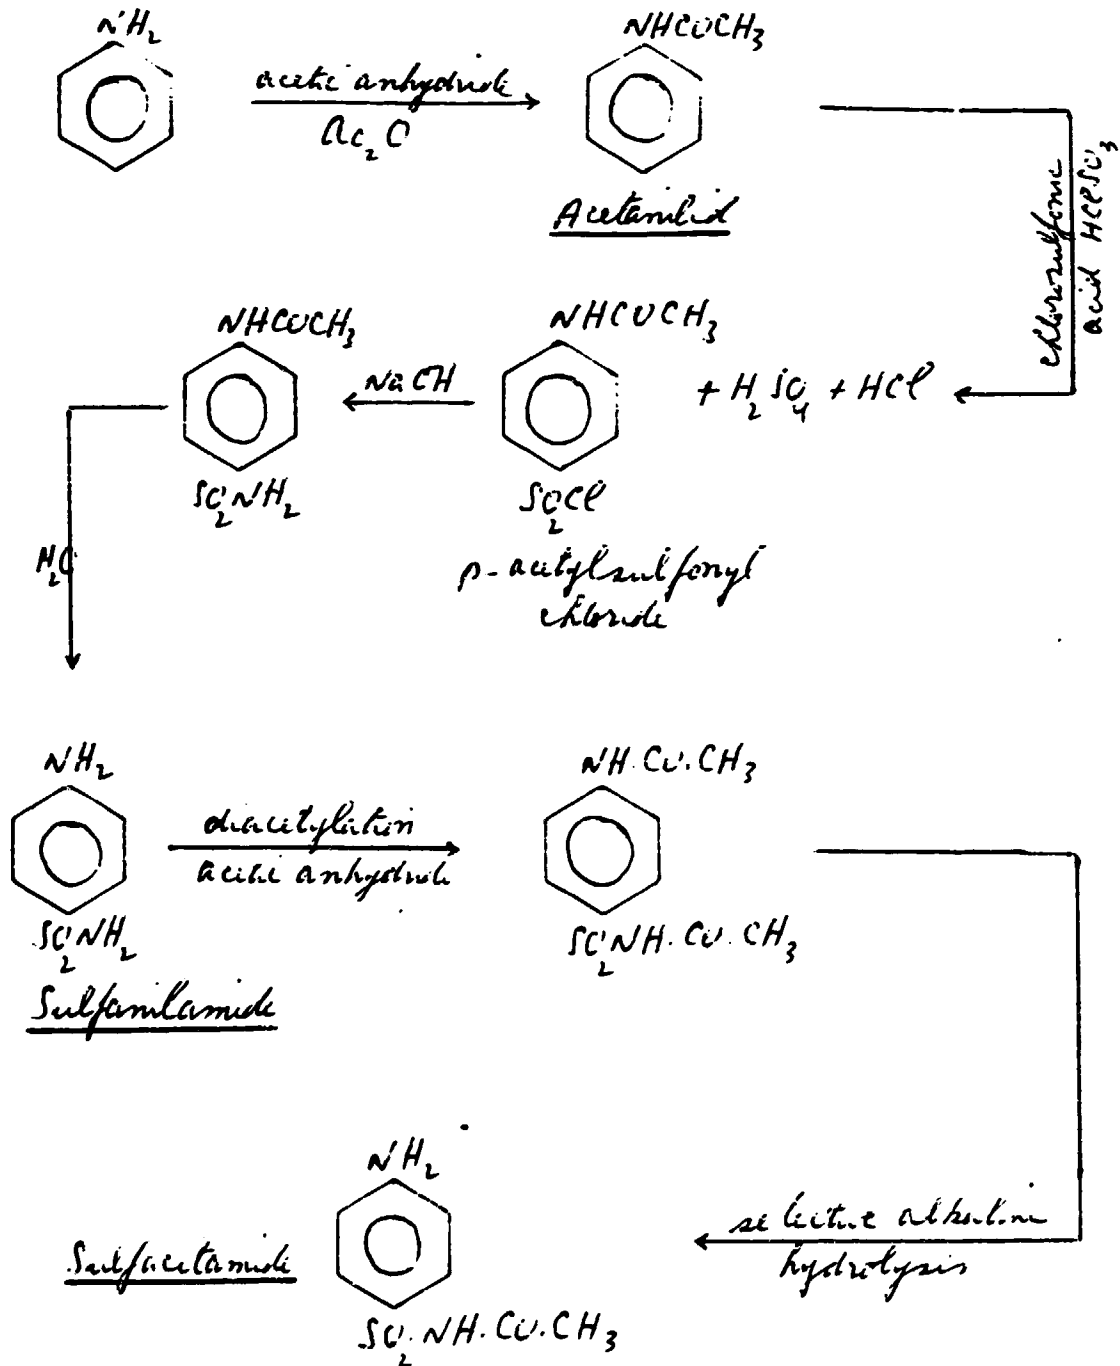 NH2
acetic anhydride
Ac2O
NHCOCH3
Acetanilid
chlorosulfonic
acid HClSO3
NHCOCH3
+ H2SO4 + HCl
SO2Cl
p-acetylsulfonyl
chloride
NaOH
NHCOCH3
SO2NH2
H2O
NH2
SO2NH2
Sulfanilamide
diacetylation
acetic anhydride
NH.CO.CH3
SO2NH.CO.CH3
selective alkaline
hydrolysis
NH2
Sulfacetamide
SO2.NH.CO.CH3